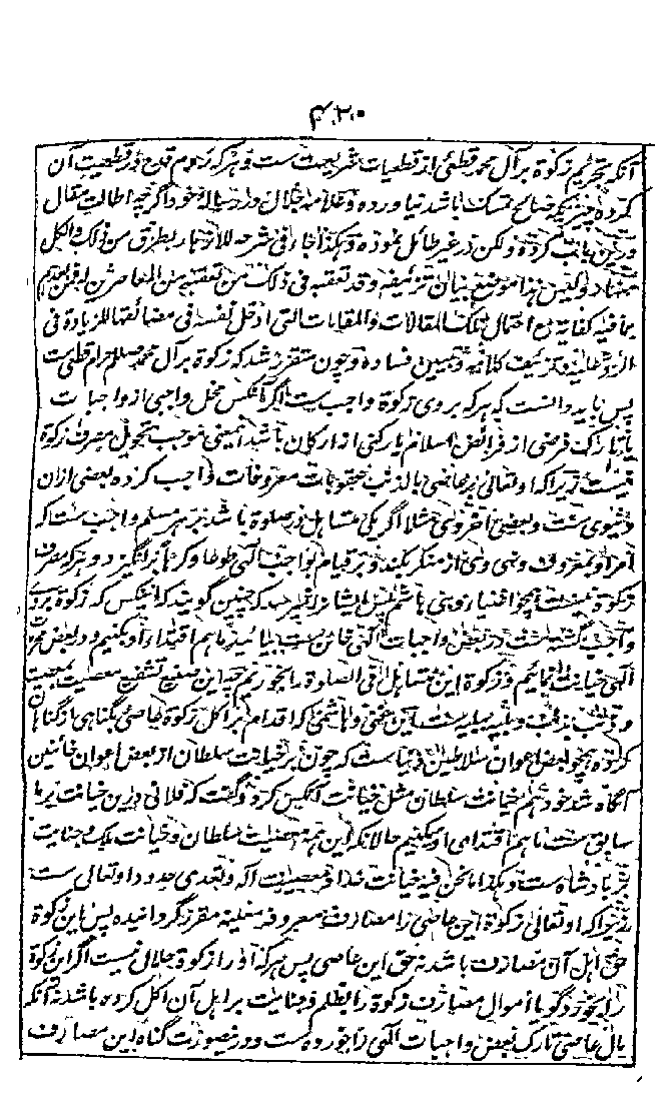 ۴۲۰
آنکه تحریم زکوة بر آل محمد قطعی از قطعیات شریعت ست و هر که روم قدح در قطعیت آن
کرده چیزیکه صالح تمسک باشد نیاورده و علامه جلال در رساله خود اگرچه اطالت مقال
درین باب کرده ولکن در غیر طائل نموده و هکذا جاء فی شرحه للازهار بطرق من ذلک والکل
ولیس هذا موضع بیان تزئیفه وقد تعقبه فی ذلک من تعقبه من المعاصرین له فمن بعدهم
بما فیه کفایة مع احتمال تلک المقالات والمقامات التی ادخل نفسه فی مضائقها للزیادة فی
الرد علیه وتزئیف کلامه وتبیین فساده وچون متقرر شد که زکوة بر آل محمد صلعم حرام قطعی ست
پس باید دانست که هر که بر وی زکوة واجب ست اگر آنکس مخل واجبی از واجبات
یا تارک فرضی از فرائض اسلام یا رکنی از ارکان باشد اینمعنی موجب تحویل مصرف زکوة
نیست زیرا که او تعالی بر عاصی بالذنب عقوبات معروفات واجب کرده بعضی ازان
دنیوی ست و بعضی اخروی مثلا اگر یکی متساهل در صلوة باشد بر هر مسلم واجب ست که
امر او بمعروف و نهی وی از منکر بکند و بر قیام بواجب الهی طوعا و کرها برانگیزد و هر که مصرف
زکوة نیست همچو اغنیاء و بنی هاشم ایشانرا نمیرسد که چنین گویند که اینکس که زکوة بروی
واجب گشته ست در بعض واجبات الهی خائن ست بیائید تا هم اقتداء او بکنیم و در بعض
الهی خیانت نمائیم و زکوة این متساهل فی الصلوة را بخوریم چه این صنیع تشفیع معصیت بمعصیت
و ترقیب بذنب و بلیه ببلیه ست این غنی و هاشمی که اقدام بر اکل زکوة عاصی بگناهی از گناهان
کرده همچو بعض اعوان سلاطین دنیا ست که چون بر خیانت سلطان از بعض اعوان خائنین
آگاه شد خود هم خیانت سلطان مثل خیانت آنکس کرد و گفت که فلانی درین خیانت بر ما
سابق ست تا هم اقتدای او بکنیم حالانکه این همه معصیت سلطان و خیانت ملک و جنایت
بر پادشاه ست و هکذا ما نحن فیه خیانت خدا و معصیت اله و تعدی حدود او تعالی ست
زیرا که او تعالی زکوة این عاصی را مصارف معروفه معینه مقرر گردانیده پس این زکوة
حق اهل آن مصارف باشد نه حق این عاصی پس هر که او را زکوة حلال نیست اگر این زکوة
را بخورد گویا اموال مصارف زکوة را بظلم و جنایت بر اهل آن اکل کرده باشد نه آنکه
مال عاصی تارک بعض واجبات الهی را خورده ست و درینصورت گناه این مصارف